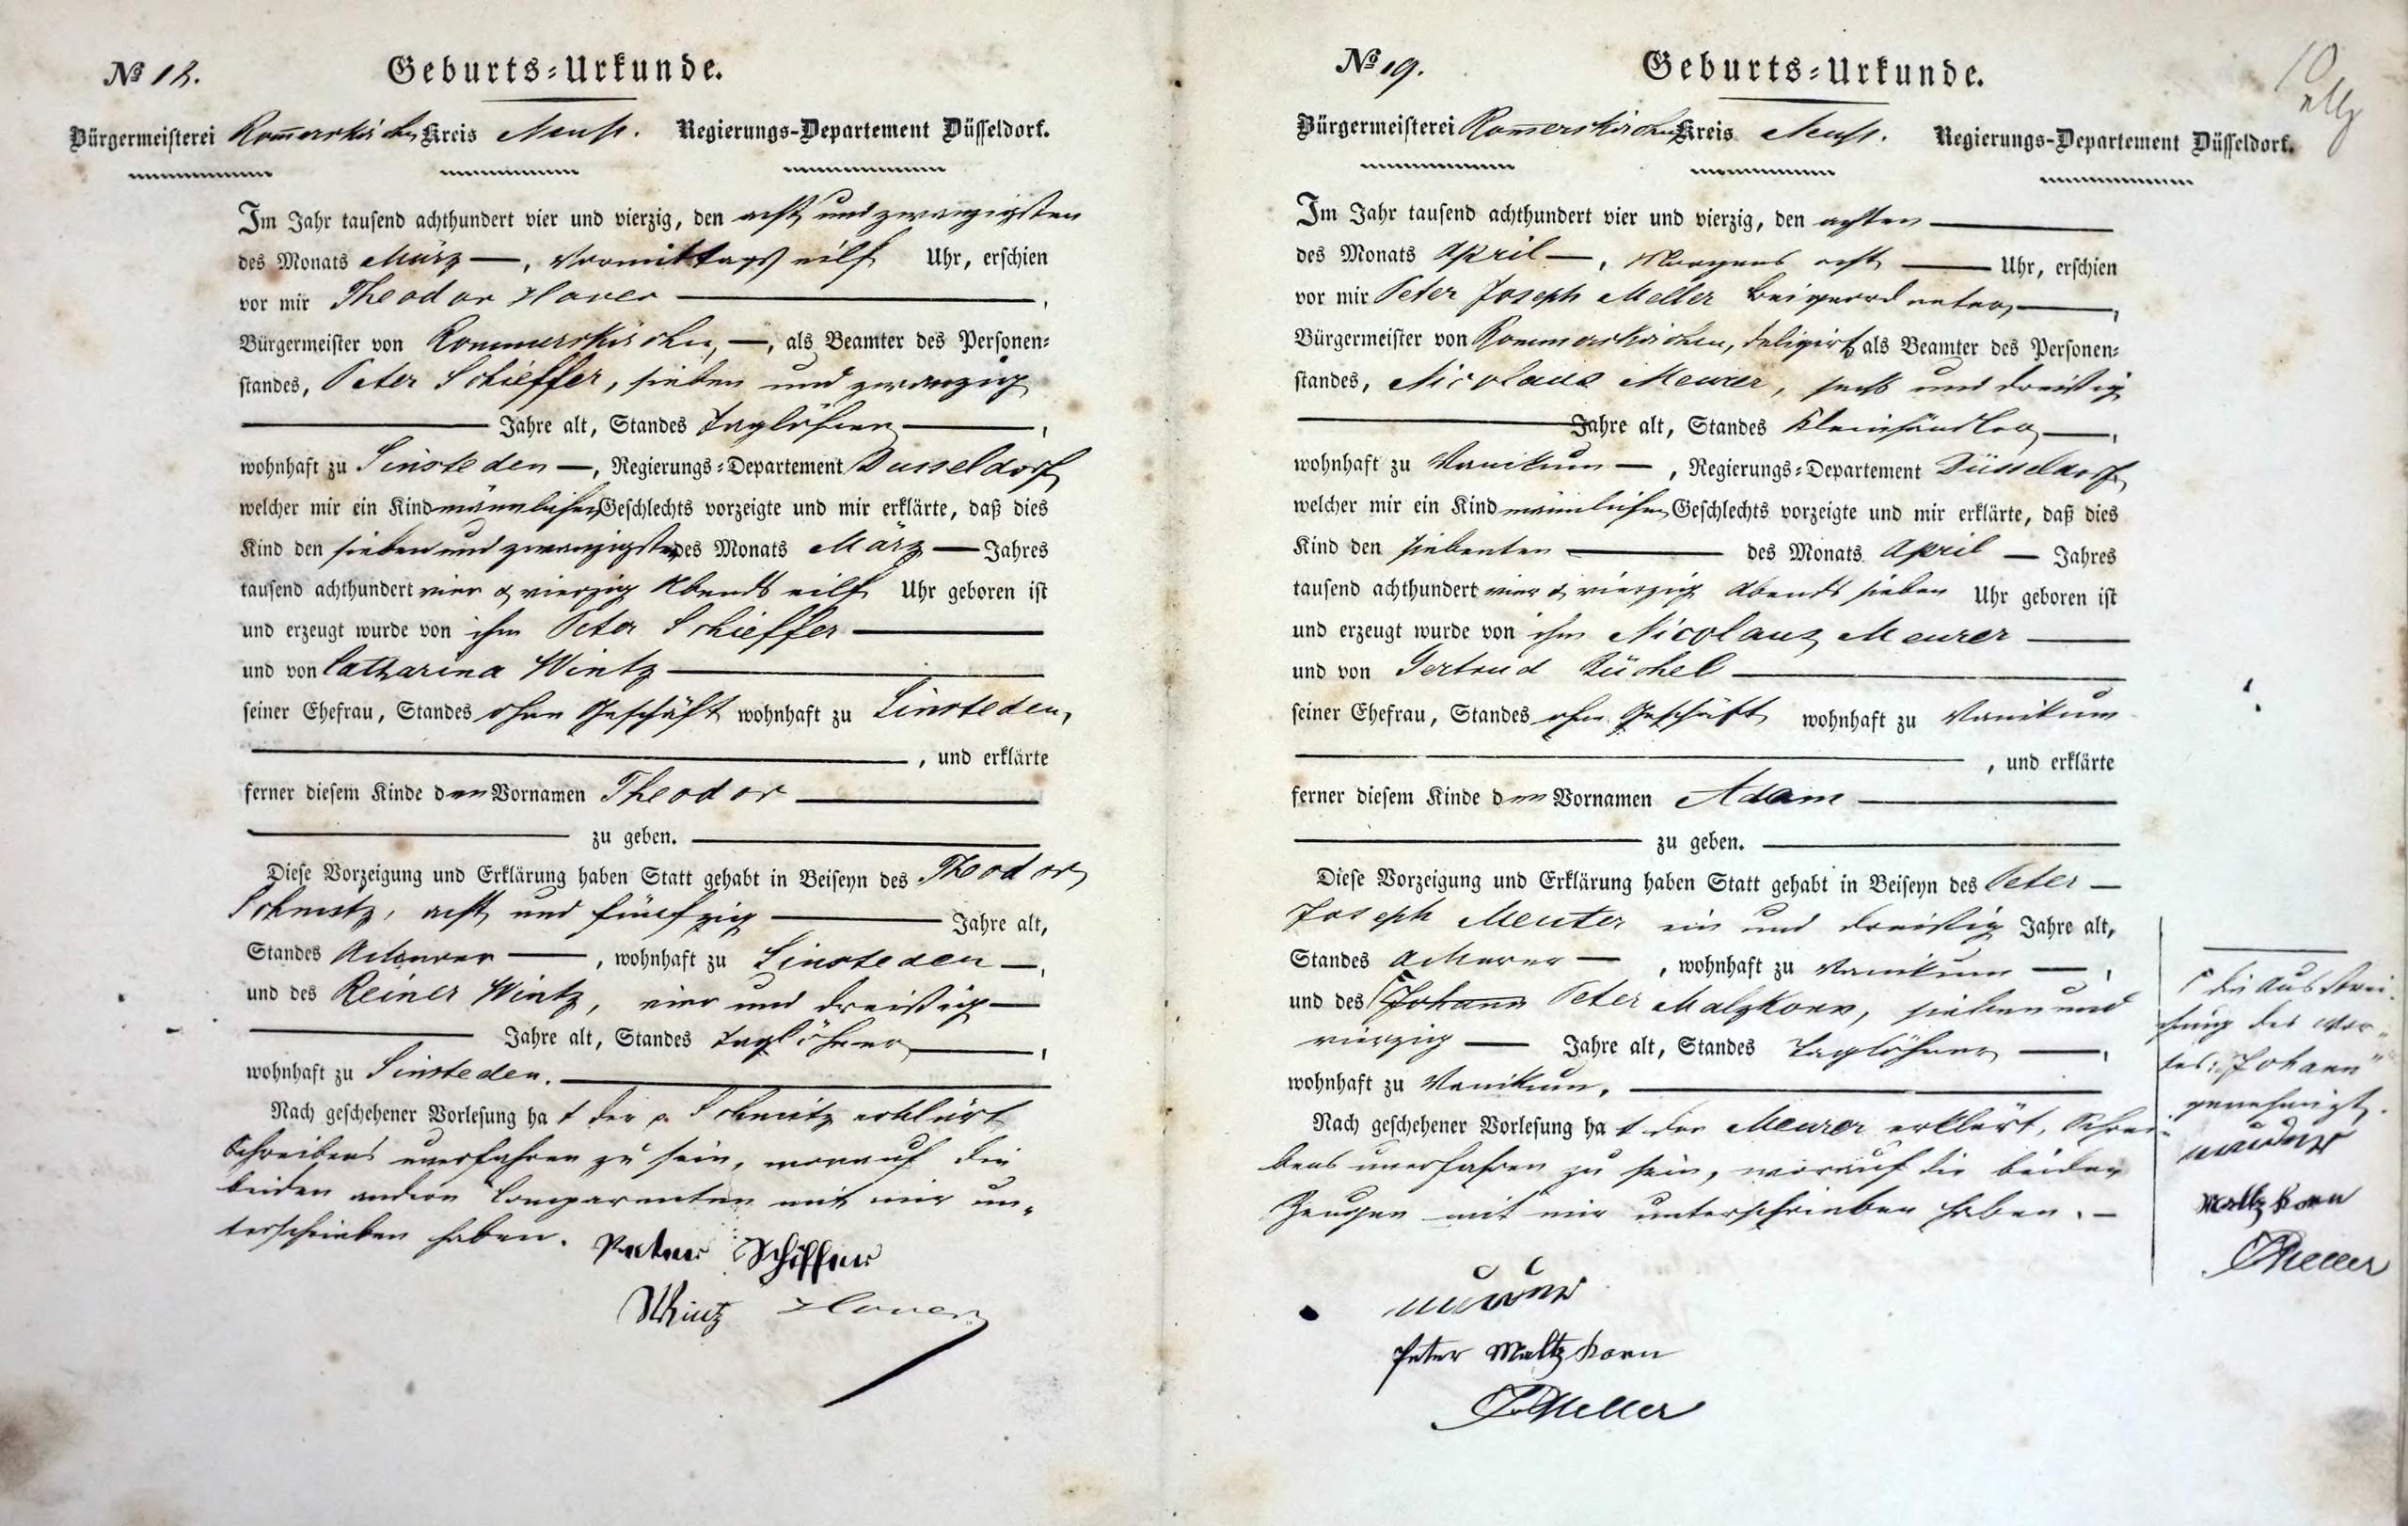 № 18.
Geburts-Urkunde.
Bürgermeisterei Rommerskirchen Kreis Neuß. Regierungs-Departement Düsseldorf.
Im Jahr tausend achthundert vier und vierzig, den acht und zwanzigsten
des Monats März —, Vormittags eilf Uhr, erschien
vor mir Theodor Hover —,
Bürgermeister von Rommerskirchen, —, als Beamter des Personen-
standes, Peter Schieffer, sieben und zwanzig
— Jahre alt, Standes Taglöhner —,
wohnhaft zu Sinsteden —, Regierungs-Departement Düsseldorf
welcher mir ein Kind männlichen Geschlechts vorzeigte und mir erklärte, daß dies
Kind den sieben und zwanzigsten des Monats März — Jahres
tausend achthundert vier & vierzig Abends eilf Uhr geboren ist
und erzeugt wurde von ihm Peter Schieffer —
und von Catharina Wintz —
seiner Ehefrau, Standes ohne Geschäft wohnhaft zu Sinsteden,
—, und erklärte
ferner diesem Kinde den Vornamen Theodor —
— zu geben. —
Diese Vorzeigung und Erklärung haben Statt gehabt in Beiseyn des Theodor
Schmitz, acht und fünfzig — Jahre alt,
Standes Ackerer —, wohnhaft zu Sinsteden —,
und des Reiner Wintz, vier und dreißig —
— Jahre alt, Standes Taglöhner —,
wohnhaft zu Sinsteden. —
Nach geschehener Vorlesung hat der p. Schmitz erklärt
Schreibens unerfahren zu sein, worauf die
beiden andern Comparenten mit mir un-
terschrieben haben.
Peter Schiffer
Wintz Hover
№ 19.
Geburts-Urkunde.
Bürgermeisterei Rommerskirchen Kreis Neuß. Regierungs-Departement Düsseldorf.
Im Jahr tausend achthundert vier und vierzig, den achten —
des Monats April —, Morgens acht — Uhr, erschien
vor mir Peter Joseph Meller Beigeordneter —,
Bürgermeister von Rommerskirchen, deligirt als Beamter des Personen-
standes, Nicolaus Meurer, sechs und dreißig
— Jahre alt, Standes Kleinhändler —,
wohnhaft zu Vanikum —, Regierungs-Departement Düsseldorf
welcher mir ein Kind männlichen Geschlechts vorzeigte und mir erklärte, daß dies
Kind den siebenten — des Monats April — Jahres
tausend achthundert vier & vierzig Abends sieben Uhr geboren ist
und erzeugt wurde von ihm Nicolaus Meurer —
und von Gertrud Küchel —
seiner Ehefrau, Standes ohne Geschäft wohnhaft zu Vanikum
—, und erklärte
ferner diesem Kinde den Vornamen Adam —
— zu geben. —
Diese Vorzeigung und Erklärung haben Statt gehabt in Beiseyn des Peter —
Joseph Meuter ein und dreißig Jahre alt,
Standes Ackerer —, wohnhaft zu Vanikum —,
und des Johann Peter Malzkorn, sieben und
vierzig — Jahre alt, Standes Taglöhner —,
wohnhaft zu Vanikum. —
Nach geschehener Vorlesung hat der Meurer erklärt, Schrei-
bens unerfahren zu sein, worauf die beiden
Zeugen mit mir unterschrieben haben. —
Peter Maltzkorn
PJMeller
die Ausstrei-
chung des Wor-
tes: "Johann"
genehmigt.
Maltzkorn